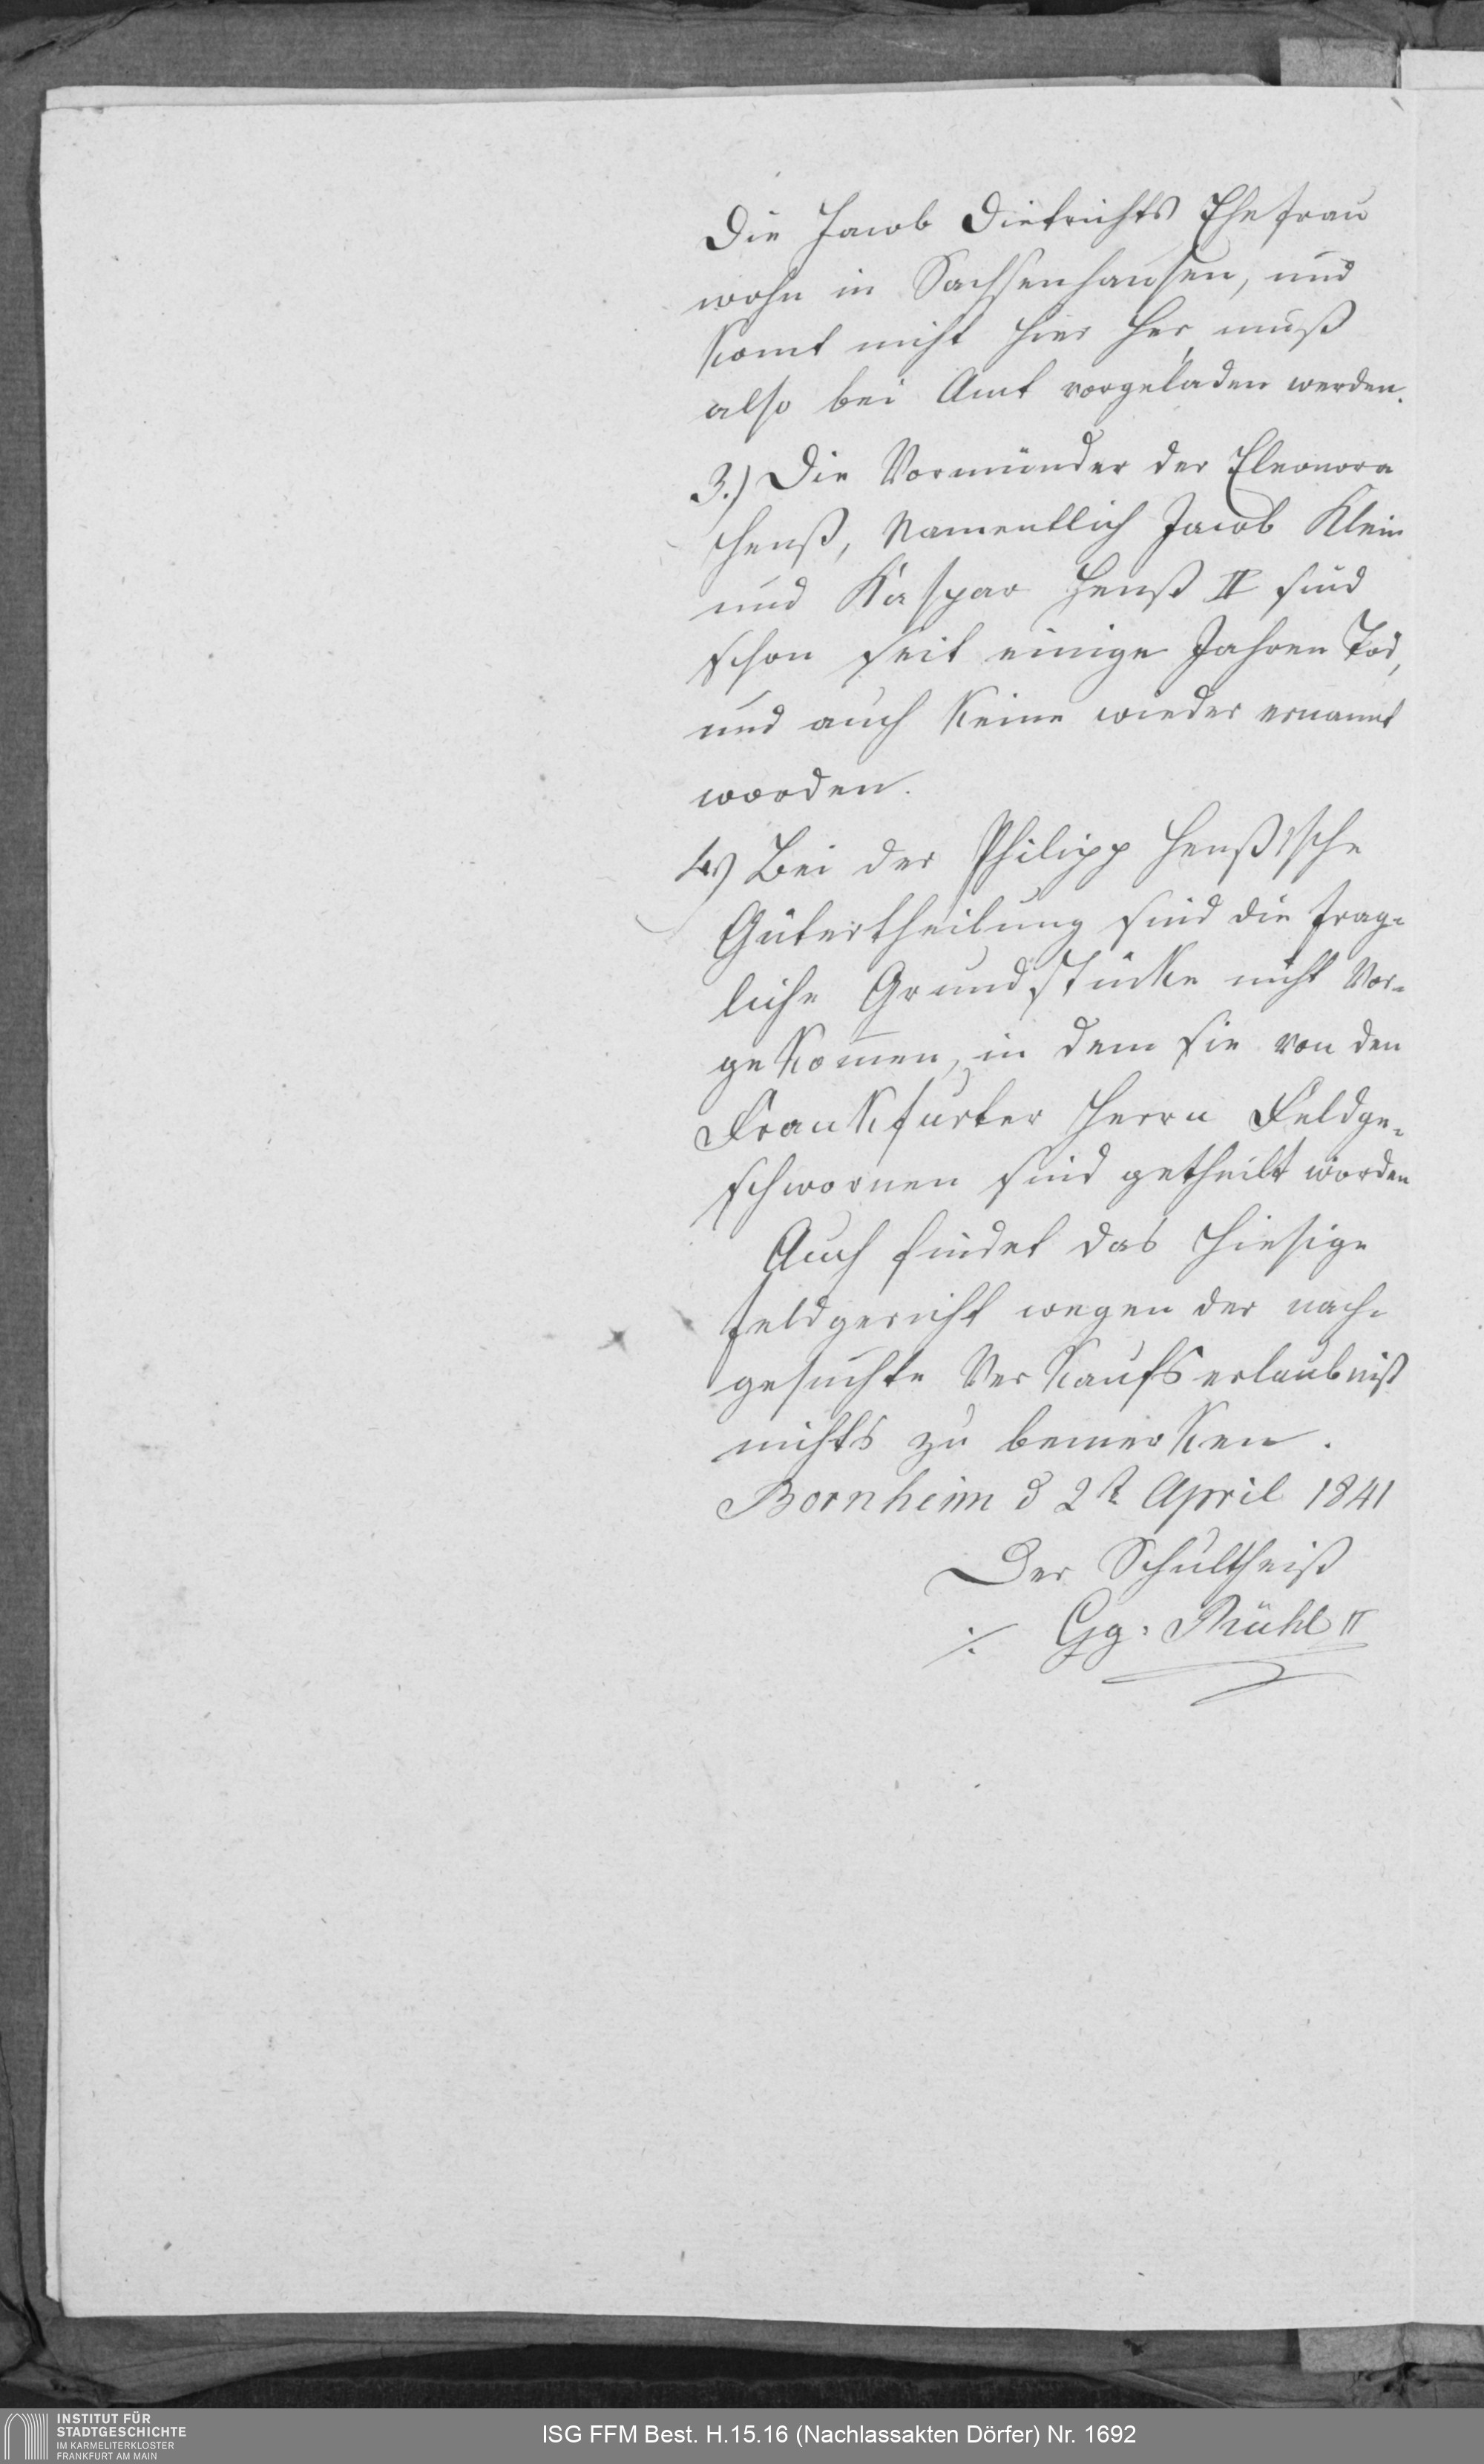 Die Jacob Dietrichts Ehefrau
wohn in Sachsenhausen, und
komt nicht hier her, muß
also bei Amt vorgeladen werden.
3.) Die Vormünder der Eleonora
Henß, Namentlich Jacob Klein
und Kaspar Henß II sind
schon seit einige Jahren Tod,
und auch keine wieder ernannt
worden.
4.) Bei der Philipp Henßische
Gütertheilung sind die frag-
liche Grundstücke nicht Vor-
gekom̅en, in dem sie von den
Frankfurter Herrn Feldge-
schwornen sind getheilt worden
Auch findet das hiesige
Feldgericht wegen der nach-
gesuchte Verkaufserlaubniß
nichts zu bemerken.
Bornheim d 2t April 1841
Der Schultheiß
./. Gg. Rühl II
INSTITUT FÜR
STADTGESCHICHTE
IM KARMELITERKLOSTER
FRANKFURT AM MAIN
ISG FFM Best. H.15.16 (Nachlassakten Dörfer) Nr. 1692